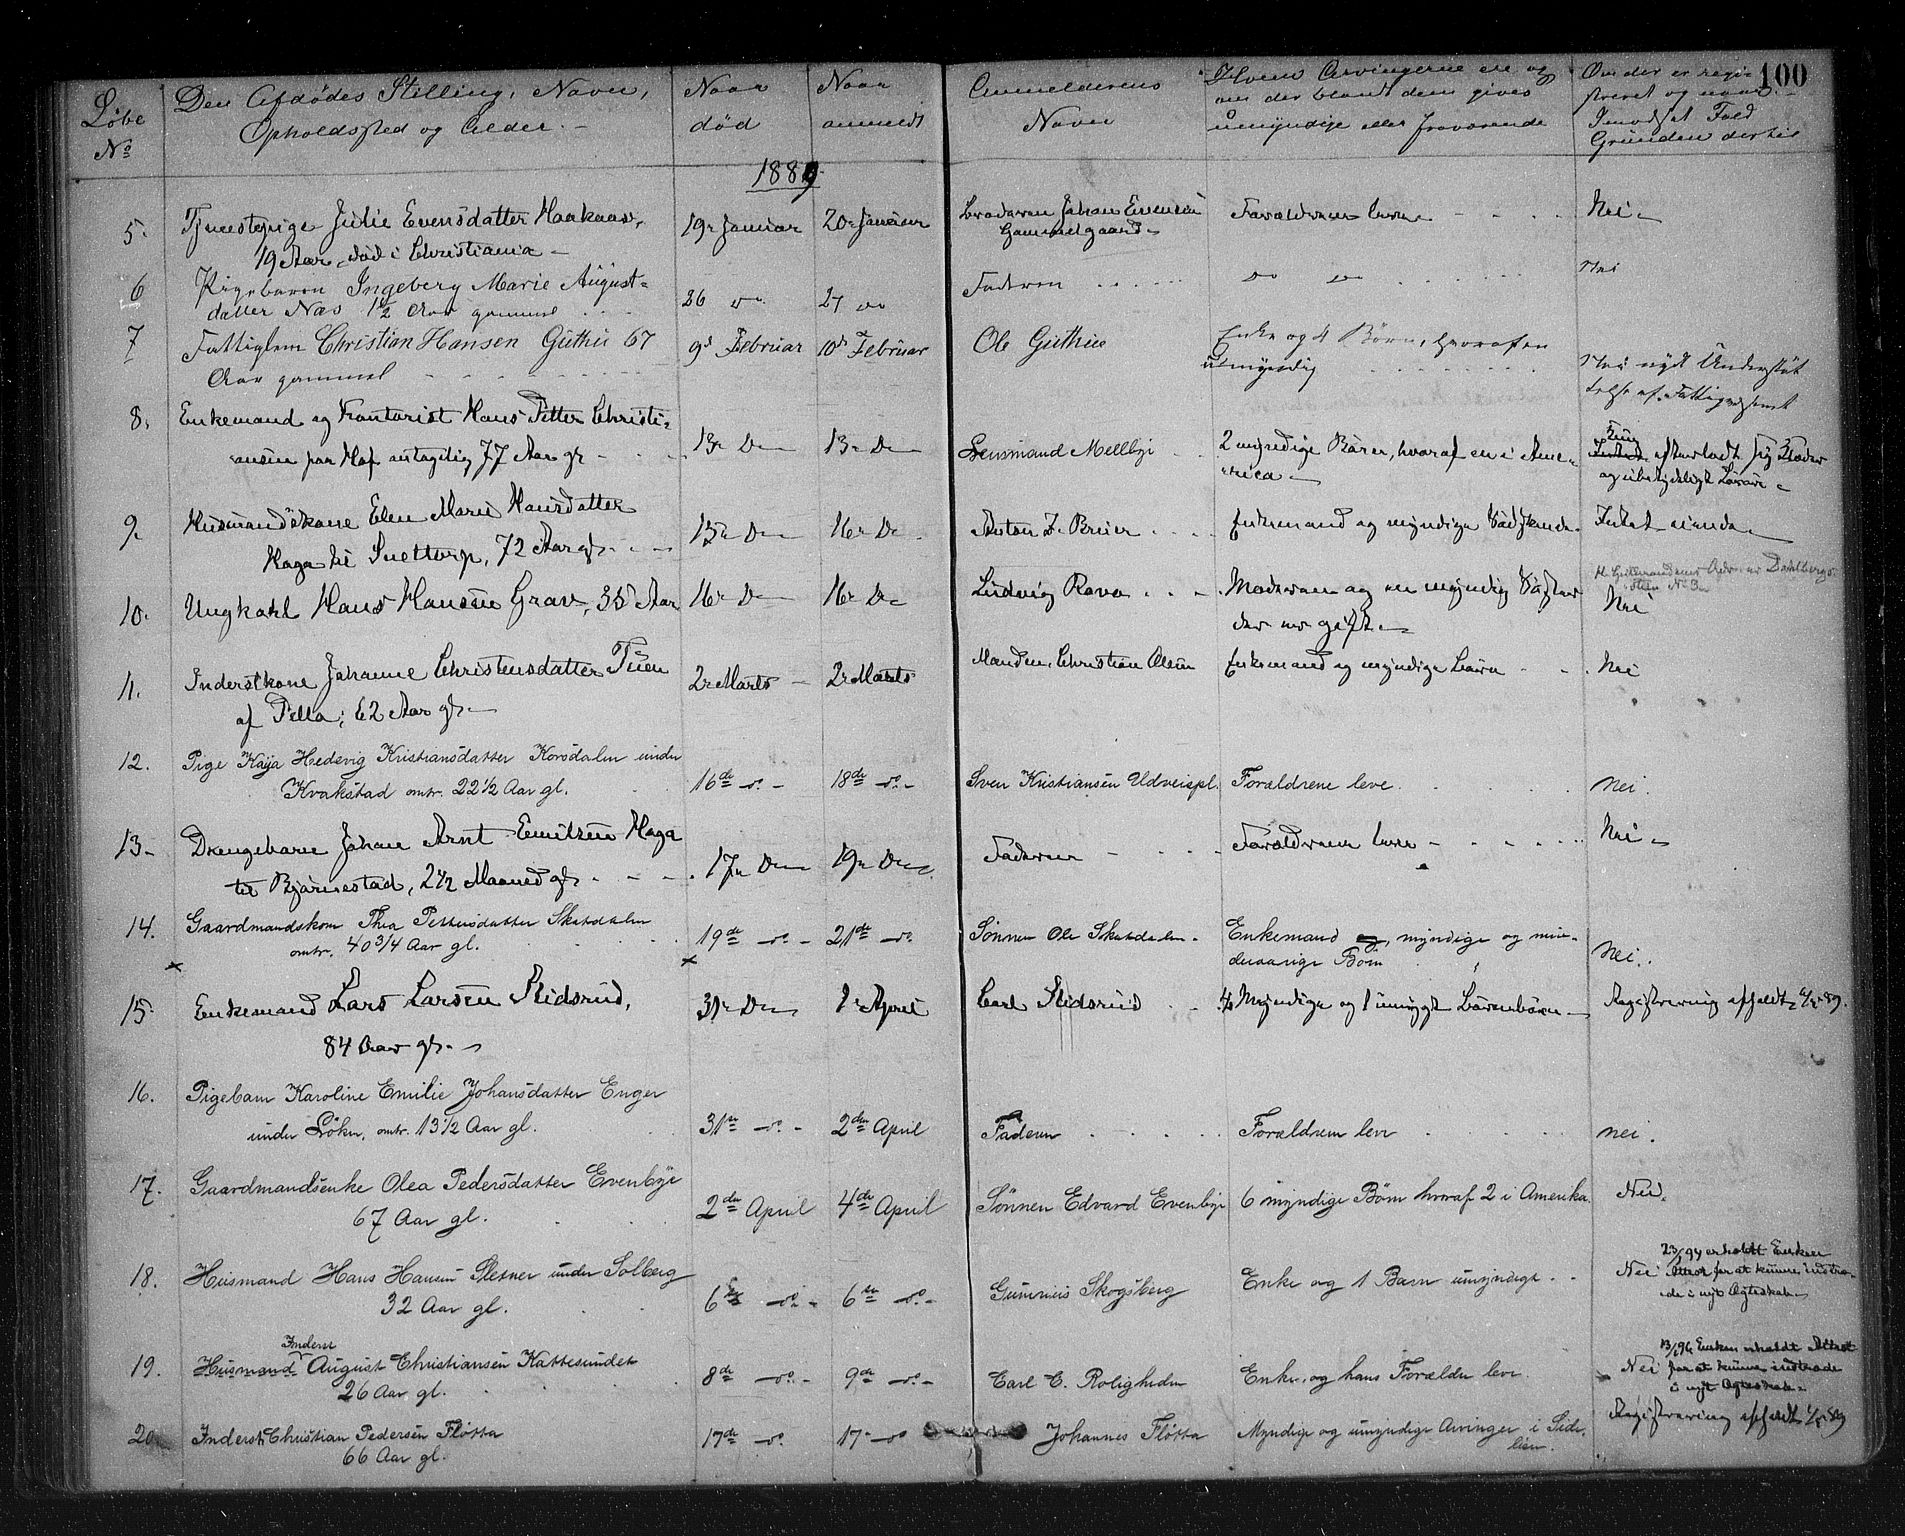 100
Løbe No
Den Afdødes Stilling, Navn, Opholdssted og Alder.
Naar død
Naar anmeldt
Anmelderens Navn
Hvem Arvingerne ere og om der blandt dem gives umyndige eller fraværende
Om der er registreret og naar. I modsat Fald Grunden dertil
1889.
5. Tjenestepige Julie Evensdatter Haakaas,
19 Aar, død i Christiania
19de Januar 20de Januar
Broderen Johan Evensen Gammelgaard
Forældrene leve Nei
6 Pigebarn Ingeberg Marie August-
datter Næs 1 1/2 Aar gammel
26 do 27 do Faderen do do Nei
7 Fattiglem Christian Hansen Guthu 67
Aar gammel
9de Februar 10de Februar Ole Guthu
Enke og 4 Børn, hvoraf en
umyndig
Nei nydt Understøt
telse af Fattigvæsenet
8. Enkemand og Kantorist Hans Petter Christi-
ansen paa Hof antagelig 77 Aar gl
13de Do 13de Do Lensmand Mellbye
2 myndige Børn, hvoraf en i Ame-
rica
efterladt sig Klæder
og ubetydeligt Løsøre
9. Husmandskone Elen Marie Hansdatter
Haga til Sneltorp, 72 Aar gl.
15de Do 16de Do Anton
Enkemand og myndige Sødskende
Intet eiende
10. Ungkarl Hans Hansen Grav, 35 Aar
16de Do 16de Do Ludvig
Moderen og en myndig Søster
der er gift
No 3
Nei
11. Inderstkone Johanne Christensdatter Tuen
af Pella, 62 Aar gl.
2de Marts 2de Marts Manden, Christian Olsen
Enkemand og myndige Børn Nei
12. Pige Kaja Hedevig Kristiansdatter Korsdalen under
Kvakstad omtr. 22 1/2 Aar gl.
16de do 18de do Sven Kristiansen Udveispl. Forældrene leve. Nei.
13 Drengebarn Johan Arnt Emilsen Haga
til Bjørnestad, 2 1/2 Maaned gl.
17de Do 19de Do Faderen Forældrene leve Nei
14. Gaardmandskone Thea Pettersdatter Skatdalen
omtr. 40 3/4 Aar gl.
19de do 21de do Sønnen Ole Skatdalen.
Enkemand og, myndige og min-
dreaarige Børn
Nei.
15. Enkemand Lars Larsen Slidsrud,
84 Aar gl.
31de Do 1de April Carl Slidsrud
4 Myndige og 1 umyndigt Børnebørn
Registrering afholdt 89.
16. Pigebarn Karoline Emilie Johansdatter Enger
under Løken, omtr. 13 1/2 Aar gl.
31te do 2den April Faderen Forældrene leve Nei.
17. Gaardmandsenke Olea Pedersdatter Evenbye
67 Aar gl.
2den April 4de April Sønnen Edvard Evenbye 6 myndige Børn hvoraf 2 i Amerika. Nei.
18. Husmand Hans Hansen Sletner under Solberg
32 Aar gl.
6te do 6te do Gunneius Skogsberg Enke og 1 Barn umyndigt
Nei
94 erholdt Enken
Attest for at kunne indtræ-
de i nyt Ægteskab
19. Husmand Inderst August Christiansen Kattesundet
26 Aar gl.
8de do 9de do Carl E. Roligheden Enke, og hans Forældre leve
Nei
96 Enken erholdt Attest
for at kunne indtræde
i nyt Ægteskab
20 Inderst Christian Pedersen Fløtta
66 Aar gl.
17de do 17 do Johannes Fløtta Myndige og umyndige Arvinger i Side-
lien.
Registrering afholdt 89